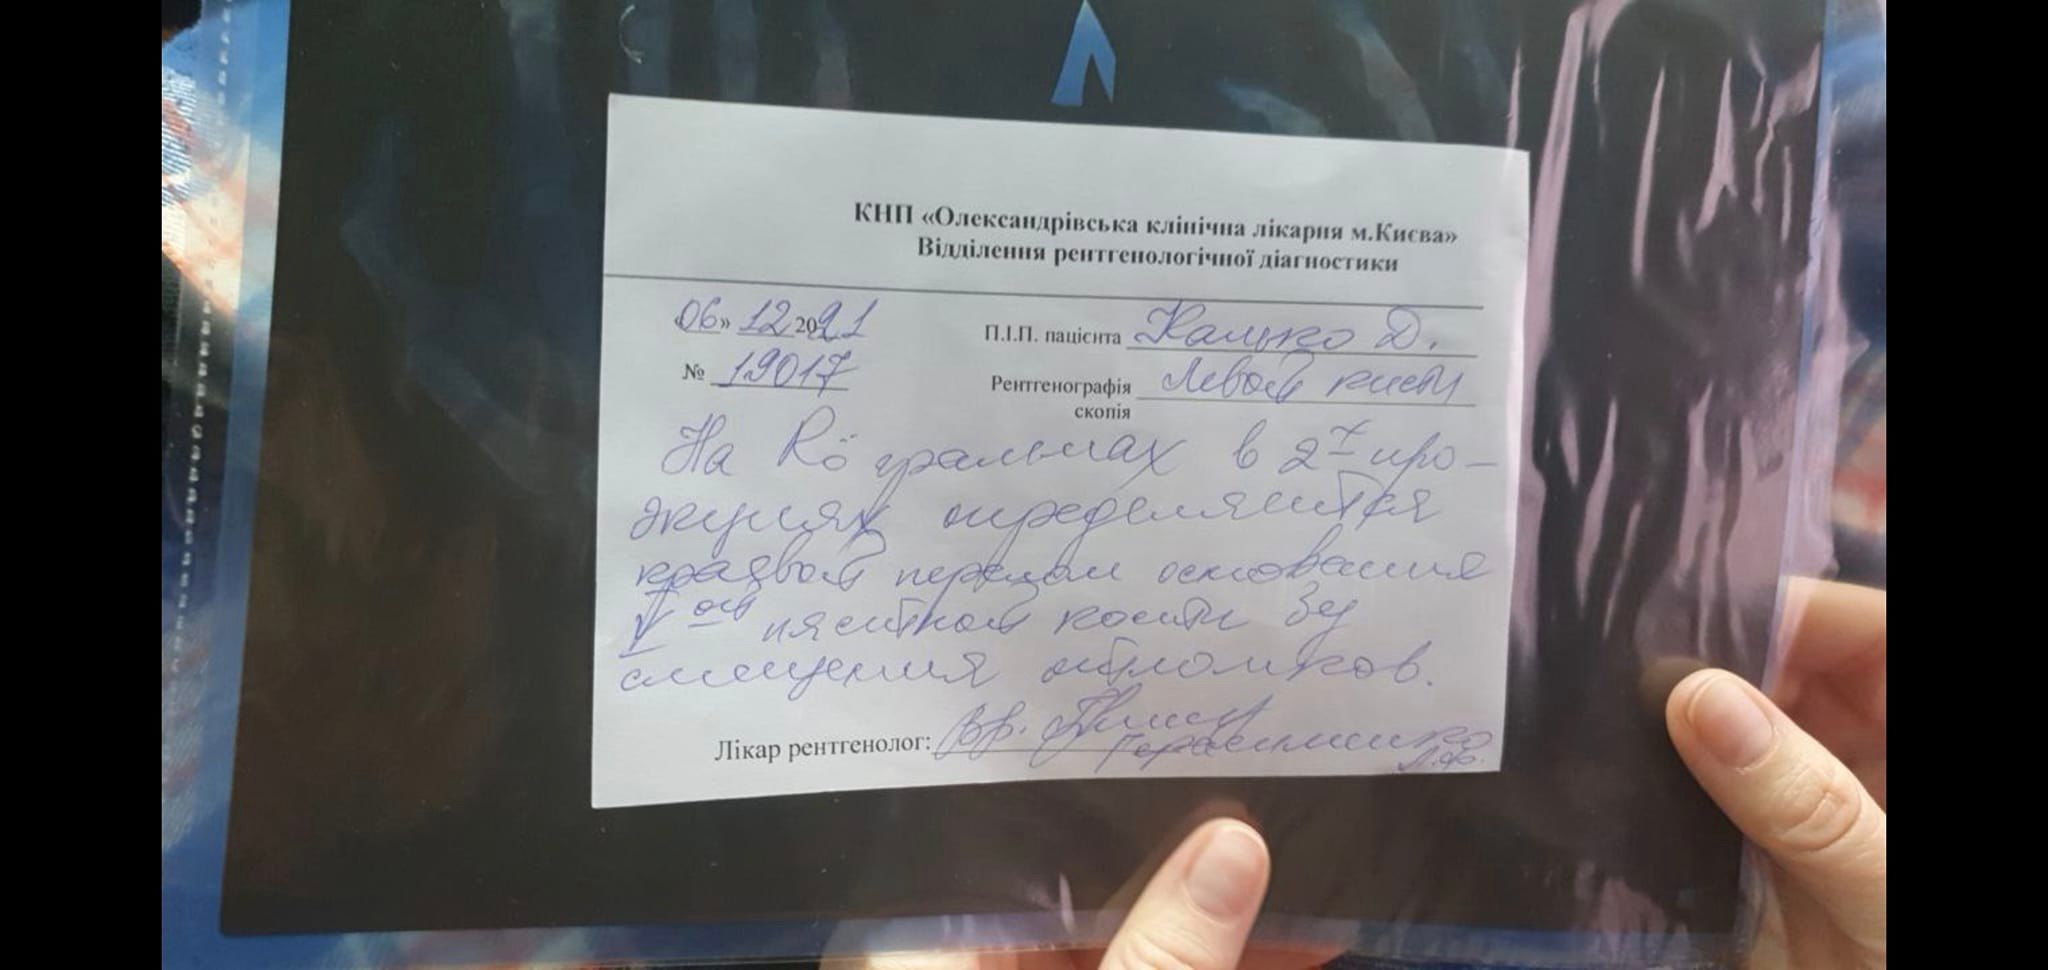 КНП «Олександрівська клінічна лікарня м.Києва»
Відділення рентгенологічної діагностики
«06» 12 2021
П.І.П. пацієнта Калько Д.
№ 19017
Рентгенографія Левой кисти
скопія
На Rö граммах в 2х про-
экциях определяется
краевой перелом основания
V ой пястной кости без
смещения отломков.
Лікар рентгенолог: Вр.
Герасименко